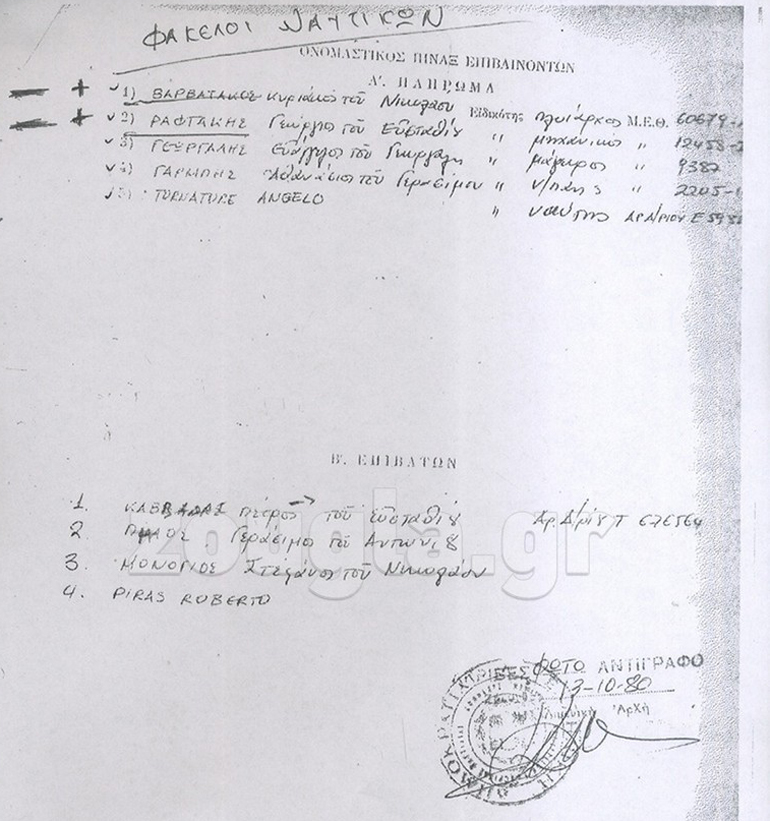 ΦΑΚΕΛΟΙ ΝΑΥΤΙΚΩΝ
ΟΝΟΜΑΣΤΙΚΟΣ ΠΙΝΑΞ ΕΠΙΒΑΙΝΟΝΤΩΝ
Α'. ΠΛΗΡΩΜΑ
1) ΒΑΡΒΑΤΑΚΟΣ Κυριάκος τοῦ Νικολάου Εἰδικότης πλοίαρχος Μ.Ε.Θ. 60679-
2) ΡΑΦΤΑΚΗΣ Γεώργιος τοῦ Εὐσταθίου " μηχανικός " 12458-
3) ΓΕΩΡΓΑΛΗΣ Εὐάγγελος τοῦ " μάγειρος " 9387
4) Ἀθανάσιος τοῦ Γερασίμου " ν/της " 2205-
5) TURNATURE ANGELO " ναύτης ΑΡ.Δ/ΡΙΟΥ Ε
Β'. ΕΠΙΒΑΤΩΝ
1. ΚΑΒΒΑΔΑΣ Πέτρος τοῦ Εὐσταθίου Αρ.Δ/ρίου Τ 676564
2 Γεράσιμος τοῦ Αντωνίου
3. ΜΟΝΟΓΙΟΣ Στέφανος τοῦ Νικολάου
4. PIRAS ROBERTO
zougla.gr
ΦΩΤΟ ΑΝΤΙΓΡΑΦΟ
13-10-80
Λιμενική Ἀρχή